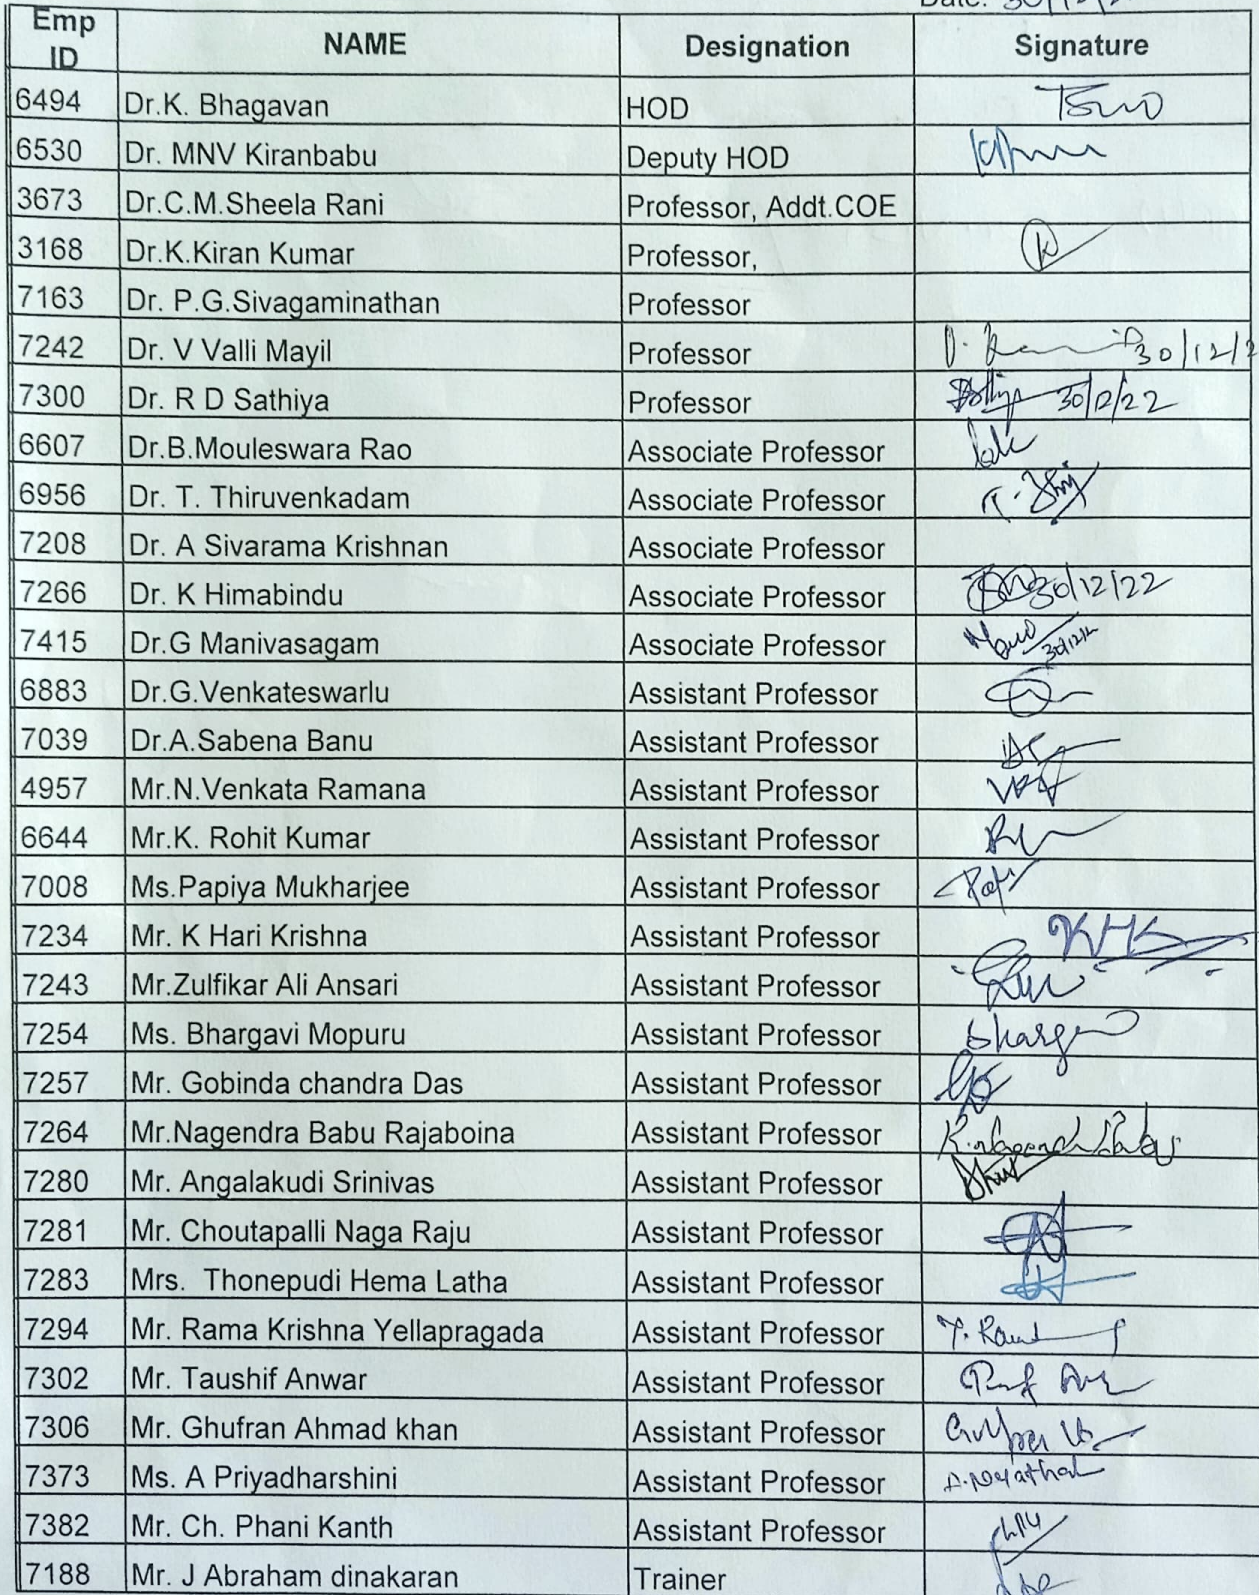 Date: 30/12/2
Emp ID NAME Designation Signature
6494 Dr.K. Bhagavan HOD
6530 Dr. MNV Kiranbabu Deputy HOD
3673 Dr.C.M.Sheela Rani Professor, Addt.COE
3168 Dr.K.Kiran Kumar Professor,
7163 Dr. P.G.Sivagaminathan Professor
7242 Dr. V Valli Mayil Professor 30/12/2
7300 Dr. R D Sathiya Professor 30/12/22
6607 Dr.B.Mouleswara Rao Associate Professor
6956 Dr. T. Thiruvenkadam Associate Professor
7208 Dr. A Sivarama Krishnan Associate Professor
7266 Dr. K Himabindu Associate Professor 30/12/22
7415 Dr.G Manivasagam Associate Professor
6883 Dr.G.Venkateswarlu Assistant Professor
7039 Dr.A.Sabena Banu Assistant Professor
4957 Mr.N.Venkata Ramana Assistant Professor
6644 Mr.K. Rohit Kumar Assistant Professor
7008 Ms.Papiya Mukharjee Assistant Professor
7234 Mr. K Hari Krishna Assistant Professor
7243 Mr.Zulfikar Ali Ansari Assistant Professor
7254 Ms. Bhargavi Mopuru Assistant Professor
7257 Mr. Gobinda chandra Das Assistant Professor
7264 Mr.Nagendra Babu Rajaboina Assistant Professor
7280 Mr. Angalakudi Srinivas Assistant Professor
7281 Mr. Choutapalli Naga Raju Assistant Professor
7283 Mrs. Thonepudi Hema Latha Assistant Professor
7294 Mr. Rama Krishna Yellapragada Assistant Professor
7302 Mr. Taushif Anwar Assistant Professor
7306 Mr. Ghufran Ahmad khan Assistant Professor
7373 Ms. A Priyadharshini Assistant Professor
7382 Mr. Ch. Phani Kanth Assistant Professor
7188 Mr. J Abraham dinakaran Trainer